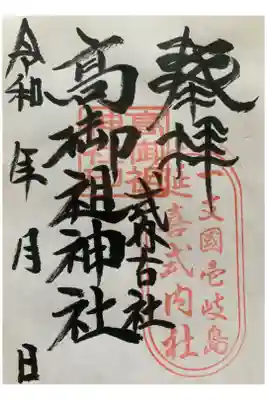 奉拝
一支國壱岐島
延喜式内社
式内古社
高御祖神社
令和 年 月 日